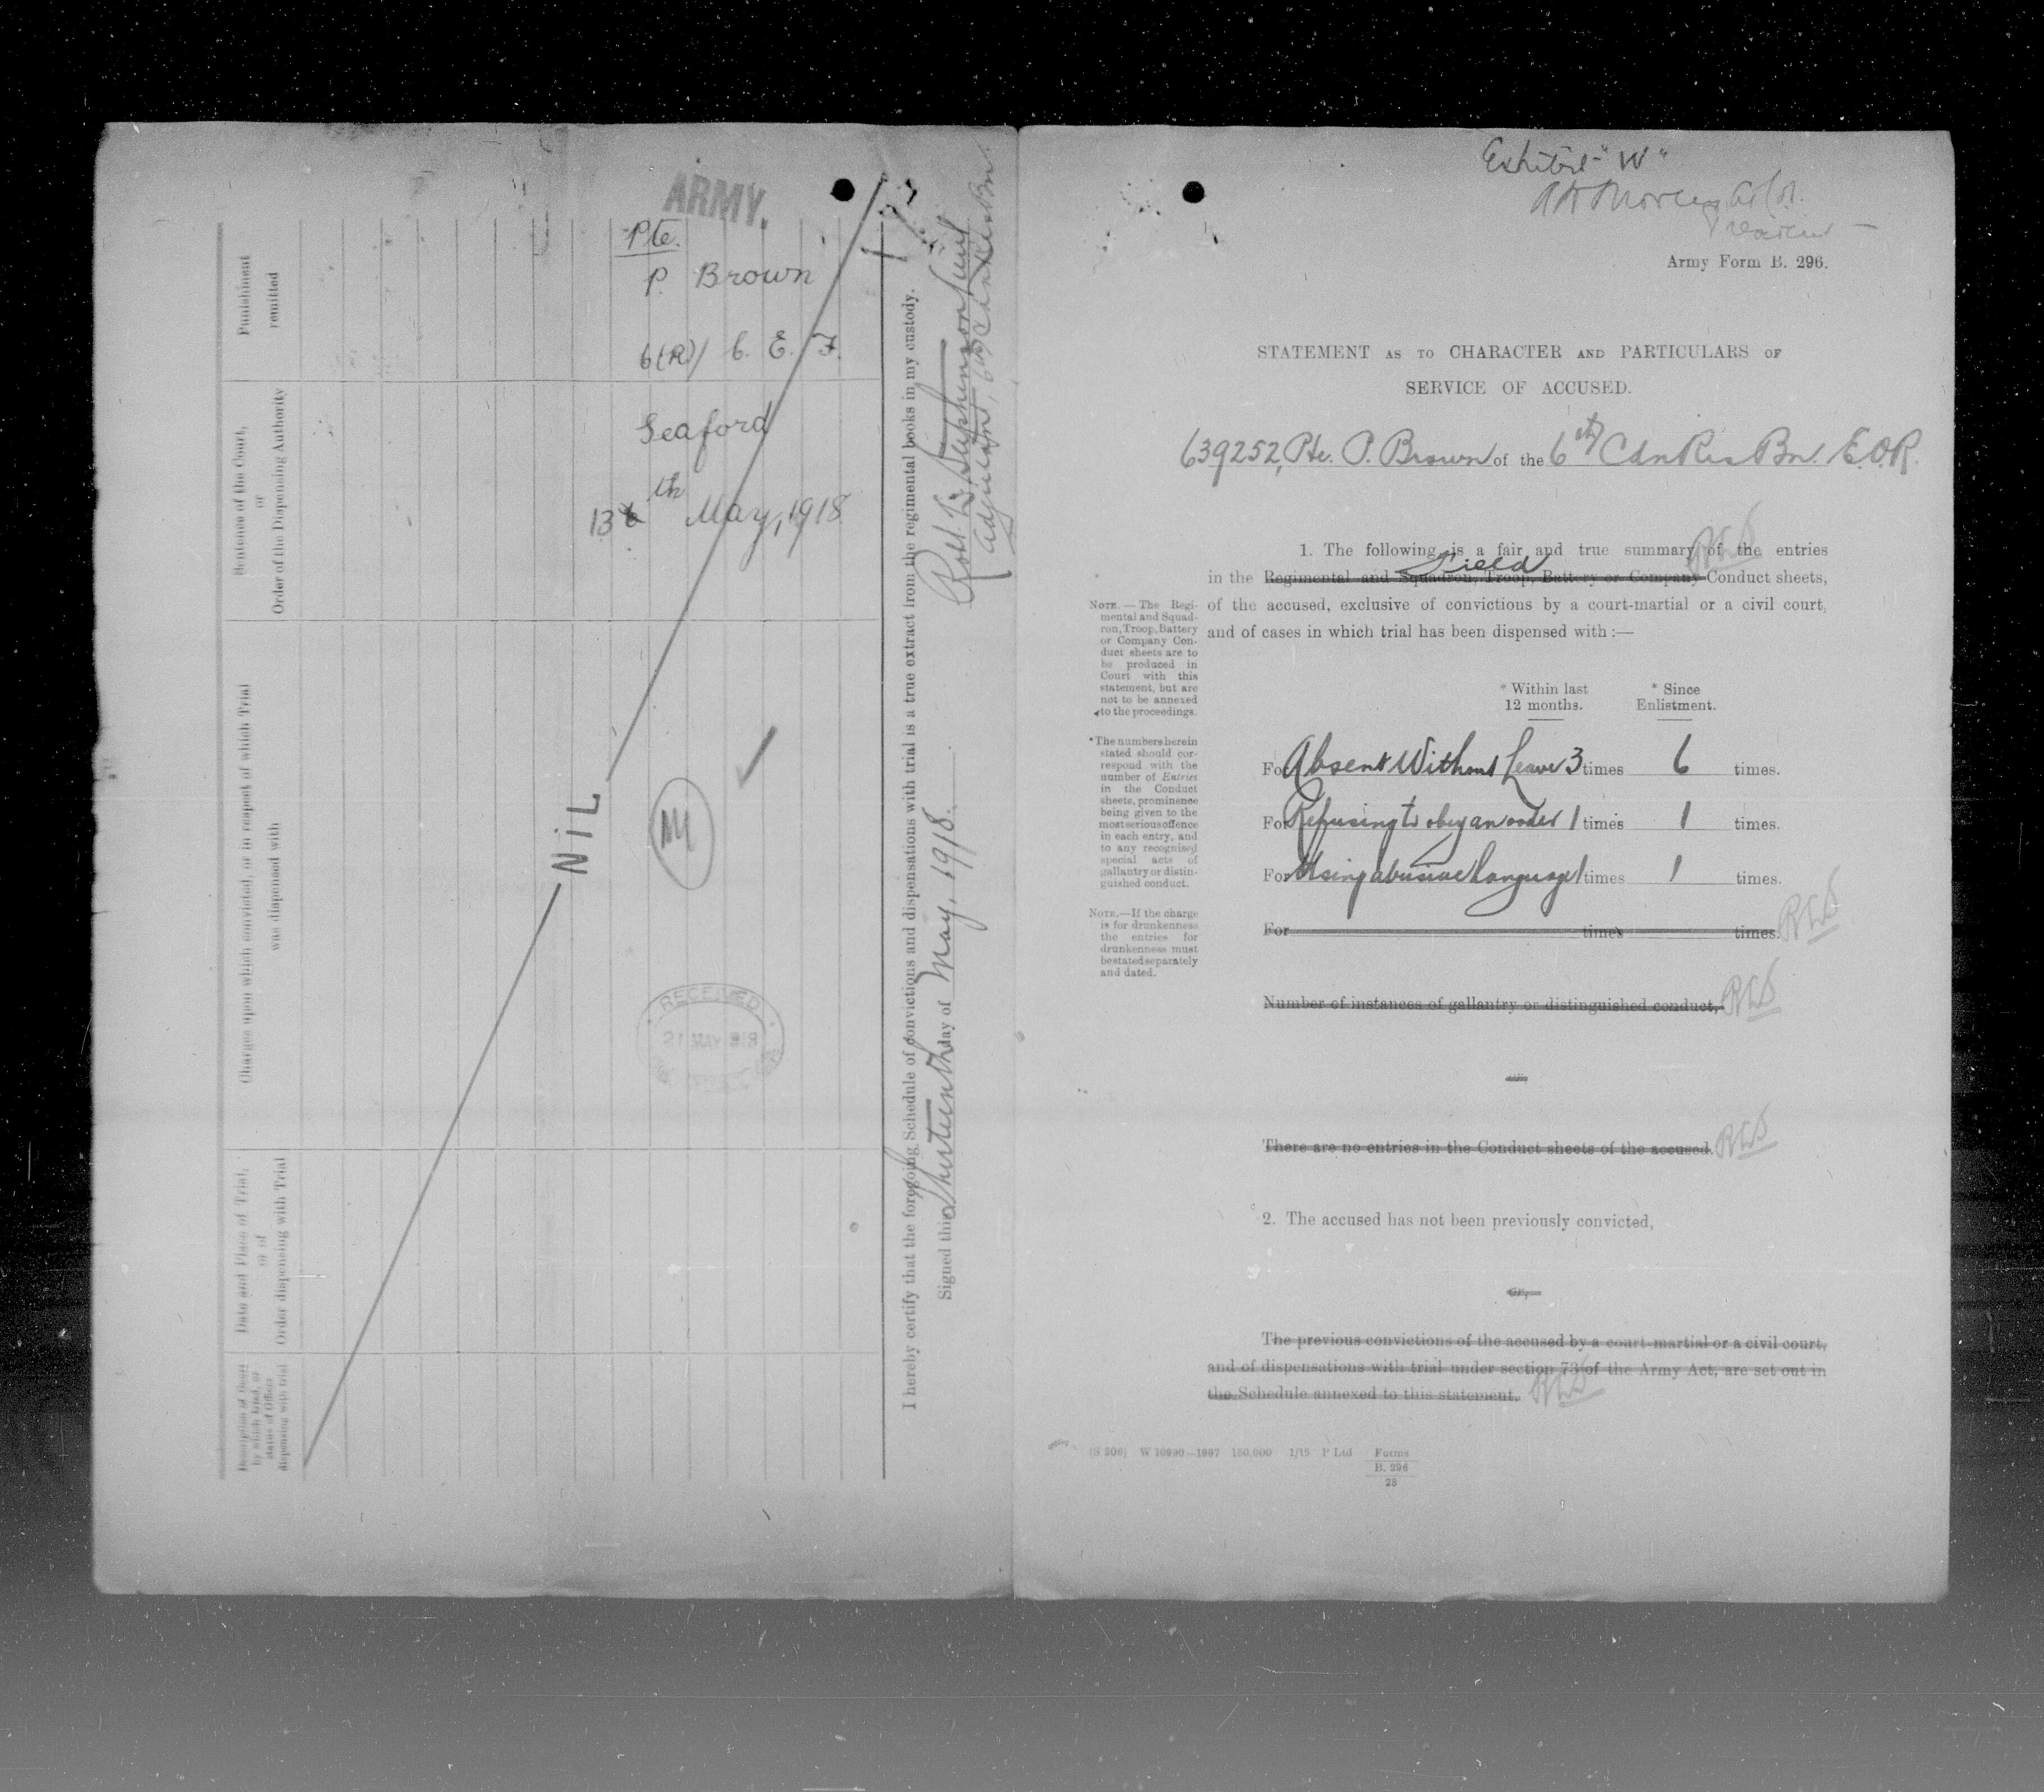 ARMY.
Pte.
P. Brown
6(R)/ C. E. F.
Seaford
13th May, 1918
NIL
M
RECEIVED
21 MAY 1918
Punishment
remitted
Sentence of the Court,
or
Order of the Dispensing Authority
Charges upon which convicted, or in respect of which Trial
was dispensed with
Date and Place of Trial,
or of
Order dispensing with Trial
Description of Court
by which tried, or
status of Officer
dispensing with trial
I hereby certify that the foregoing Schedule of convictions and dispensations with trial is a true extract from the regimental books in my custody.
Signed this Thirteenth day of May, 1918.
Robt. L. Stephenson Lieut
Adjutant, 6th Can Res Bn.
Exhibit "W"
Army Form B. 296.
STATEMENT AS TO CHARACTER AND PARTICULARS OF
SERVICE OF ACCUSED.
639252, Pte. P. Brown of the 6th Cdn Res Bn. E.O.R.
1. The following is a fair and true summary of the entries
RLS
Field
in the Regimental and Squadron, Troop, Battery or Company Conduct sheets,
of the accused, exclusive of convictions by a court-martial or a civil court,
and of cases in which trial has been dispensed with :—
NOTE. — The Regi-
mental and Squad-
ron, Troop, Battery
or Company Con-
duct sheets are to
be produced in
Court with this
statement, but are
not to be annexed
to the proceedings.
*The numbers herein
stated should cor-
respond with the
number of Entries
in the Conduct
sheets, prominence
being given to the
most serious offence
in each entry, and
to any recognised
special acts of
gallantry or distin-
guished conduct.
NOTE.—If the charge
is for drunkenness
the entries for
drunkenness must
be stated separately
and dated.
* Within last
12 months.
* Since
Enlistment.
For Absent Without Leave 3 times 6 times.
For Refusing to obey an order 1 times 1 times.
For Using abusive language 1 times 1 times.
For times times. RLS
Number of instances of gallantry or distinguished conduct, RLS
There are no entries in the Conduct sheets of the accused. RLS
2. The accused has not been previously convicted,
or,
The previous convictions of the accused by a court-martial or a civil court,
and of dispensations with trial under section 73 of the Army Act, are set out in
the Schedule annexed to this statement. RLS
(S 206) W 10990—1997 150,000 1/15 P Ltd Forms
B. 296
28